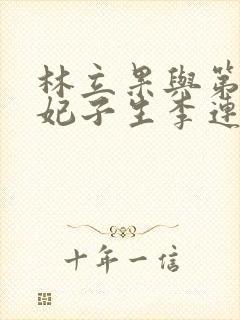 林立果與第
妃子生李連
十年一信